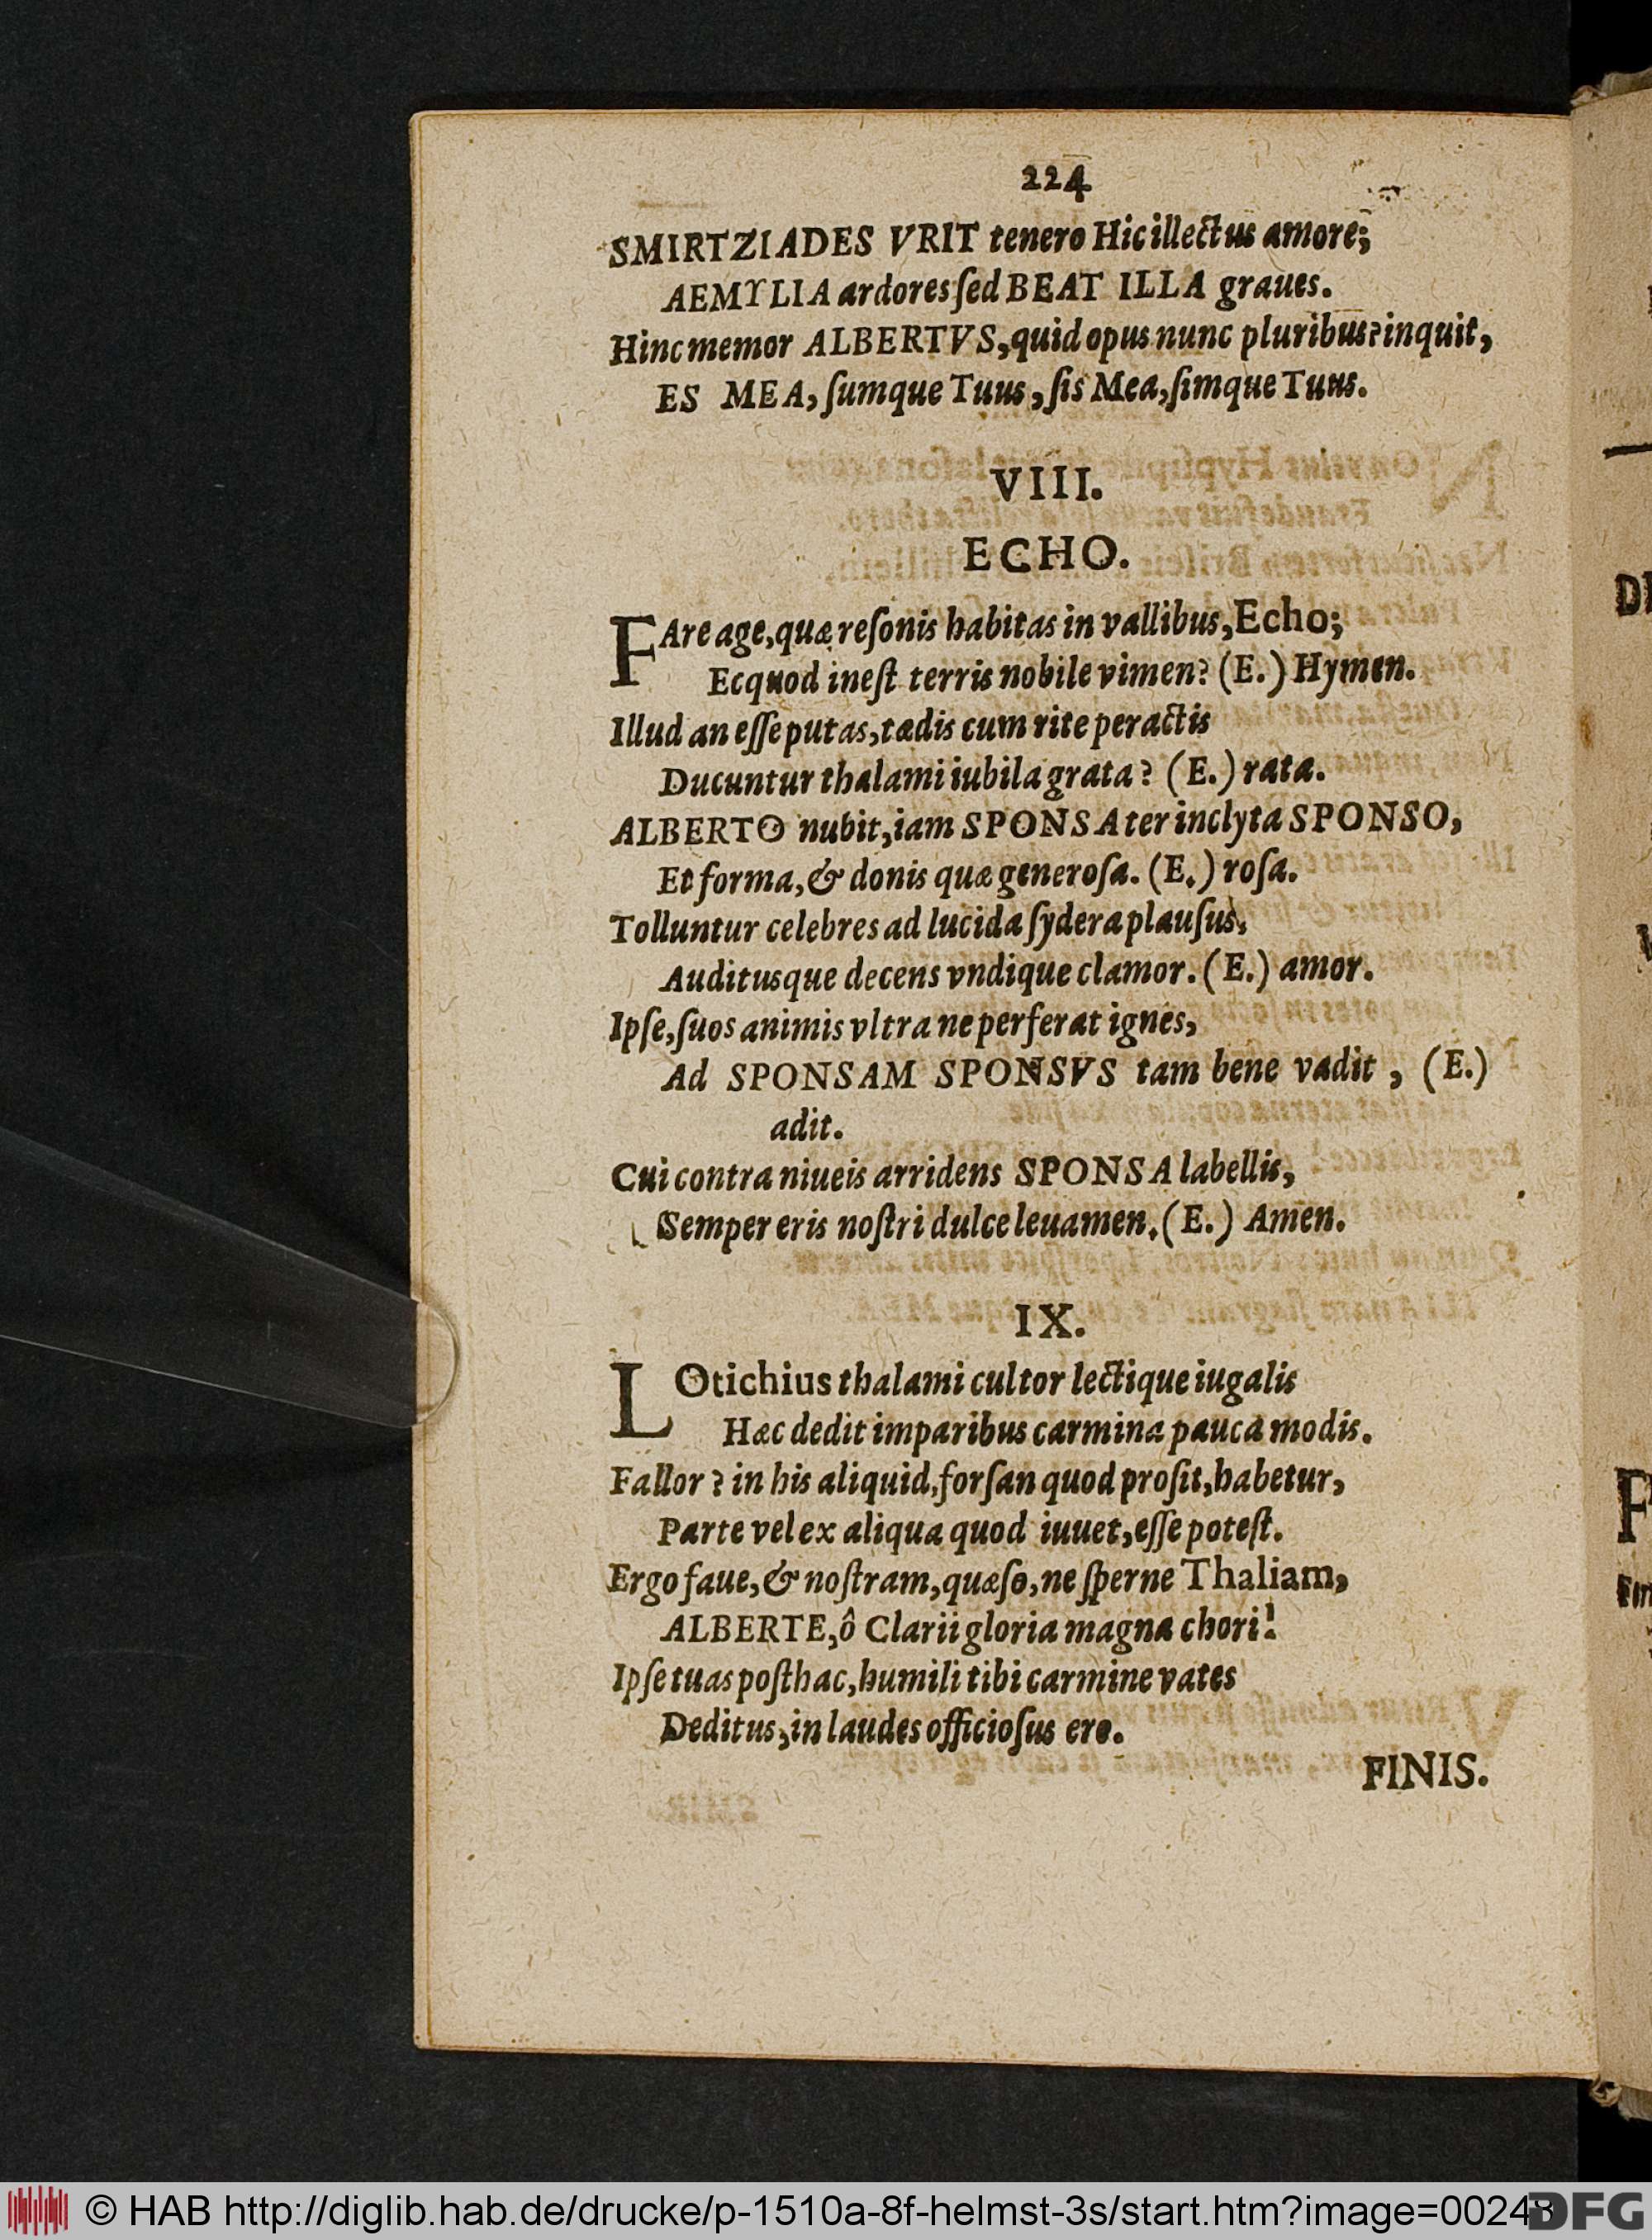 224
SMIRTZIADES VRIT tenero Hic illectus amore;
AEMYLIA ardores ſed BEAT ILLA graues.
Hinc memor ALBERTVS, quid opus nunc pluribus? inquit,
ES MEA, ſumque Tuus, ſis Mea, ſimque Tuus.
VIII.
ECHO.
FAre age, quæ reſonis habitas in vallibus, Echo;
Ecquod ineſt terris nobile vimen? (E.) Hymen.
Illud an eſſe putas, tædis cum rite peractis
Ducuntur thalami iubila grata? (E.) rata.
ALBERTO nubit, iam SPONSA ter inclyta SPONSO,
Et forma, & donis quæ generoſa. (E.) roſa.
Tolluntur celebres ad lucida ſydera plauſus,
Auditusque decens vndique clamor. (E.) amor.
Ipſe, ſuos animis vltra ne perferat ignes,
Ad SPONSAM SPONSVS tam bene vadit, (E.)
adit.
Cui contra niueis arridens SPONSA labellis,
Semper eris noſtri dulce leuamen. (E.) Amen.
IX.
LOtichius thalami cultor lectique iugalis
Hæc dedit imparibus carmina pauca modis.
Fallor? in his aliquid, forſan quod proſit, habetur,
Parte vel ex aliqua quod iuuet, eſſe poteſt.
Ergo faue, & noſtram, quæſo, ne ſperne Thaliam,
ALBERTE, ô Clarii gloria magna chori!
Ipſe tuas poſthac, humili tibi carmine vates
Deditus, in laudes officioſus ero.
FINIS.
© HAB http://diglib.hab.de/drucke/p-1510a-8f-helmst-3s/start.htm?image=00248
DFG